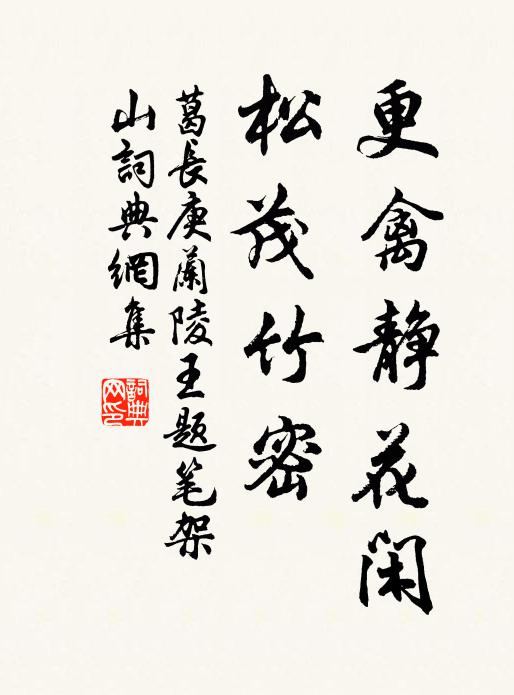 更禽静花闲
松茂竹密
葛長庚蘭陵王题笔架
山詞典網集
詞典网印